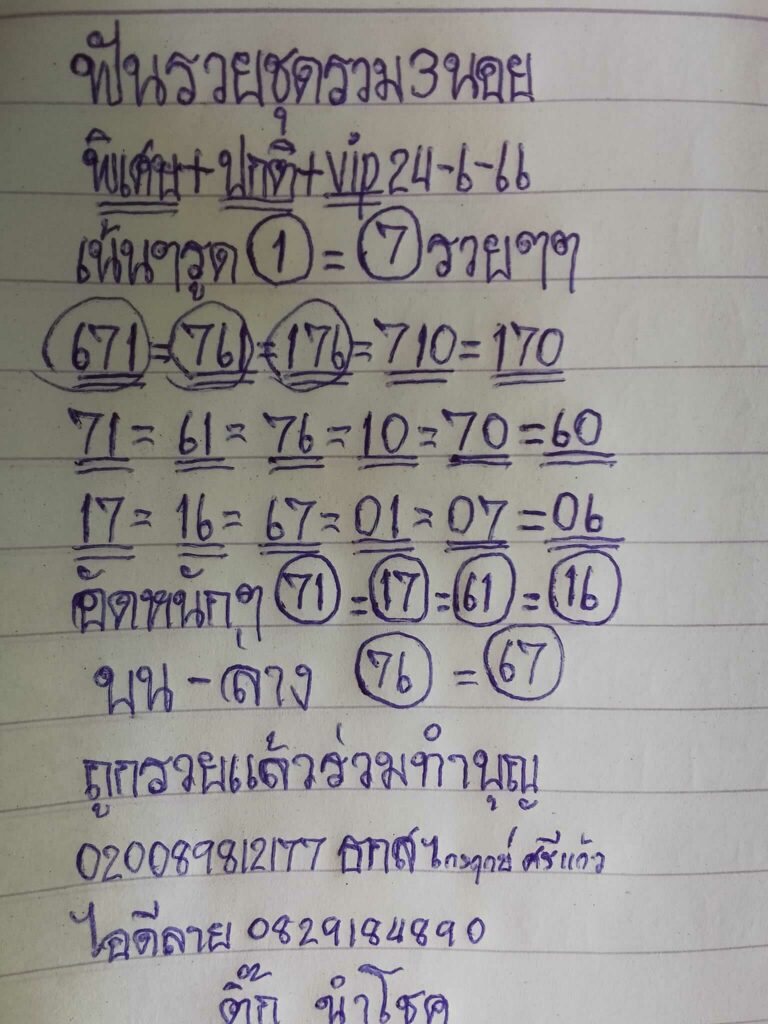 ฟันรวยชุดรวม3นอย
พิเศษ+ปกติ+vip 24-6-66
เน้นๆรูด 1 = 7 รวยๆๆ
671=761=176=710=170
71=61=76=10=70=60
17=16=67=01=07=06
อัดหนักๆ 71=17=61=16
บน-ล่าง 76=67
ถูกรวยแล้วร่วมทำบุญ
020089812177 ธกส ศรีแก้ว
ไอดีลาย 0829184890
ติ๊ก นำโชค